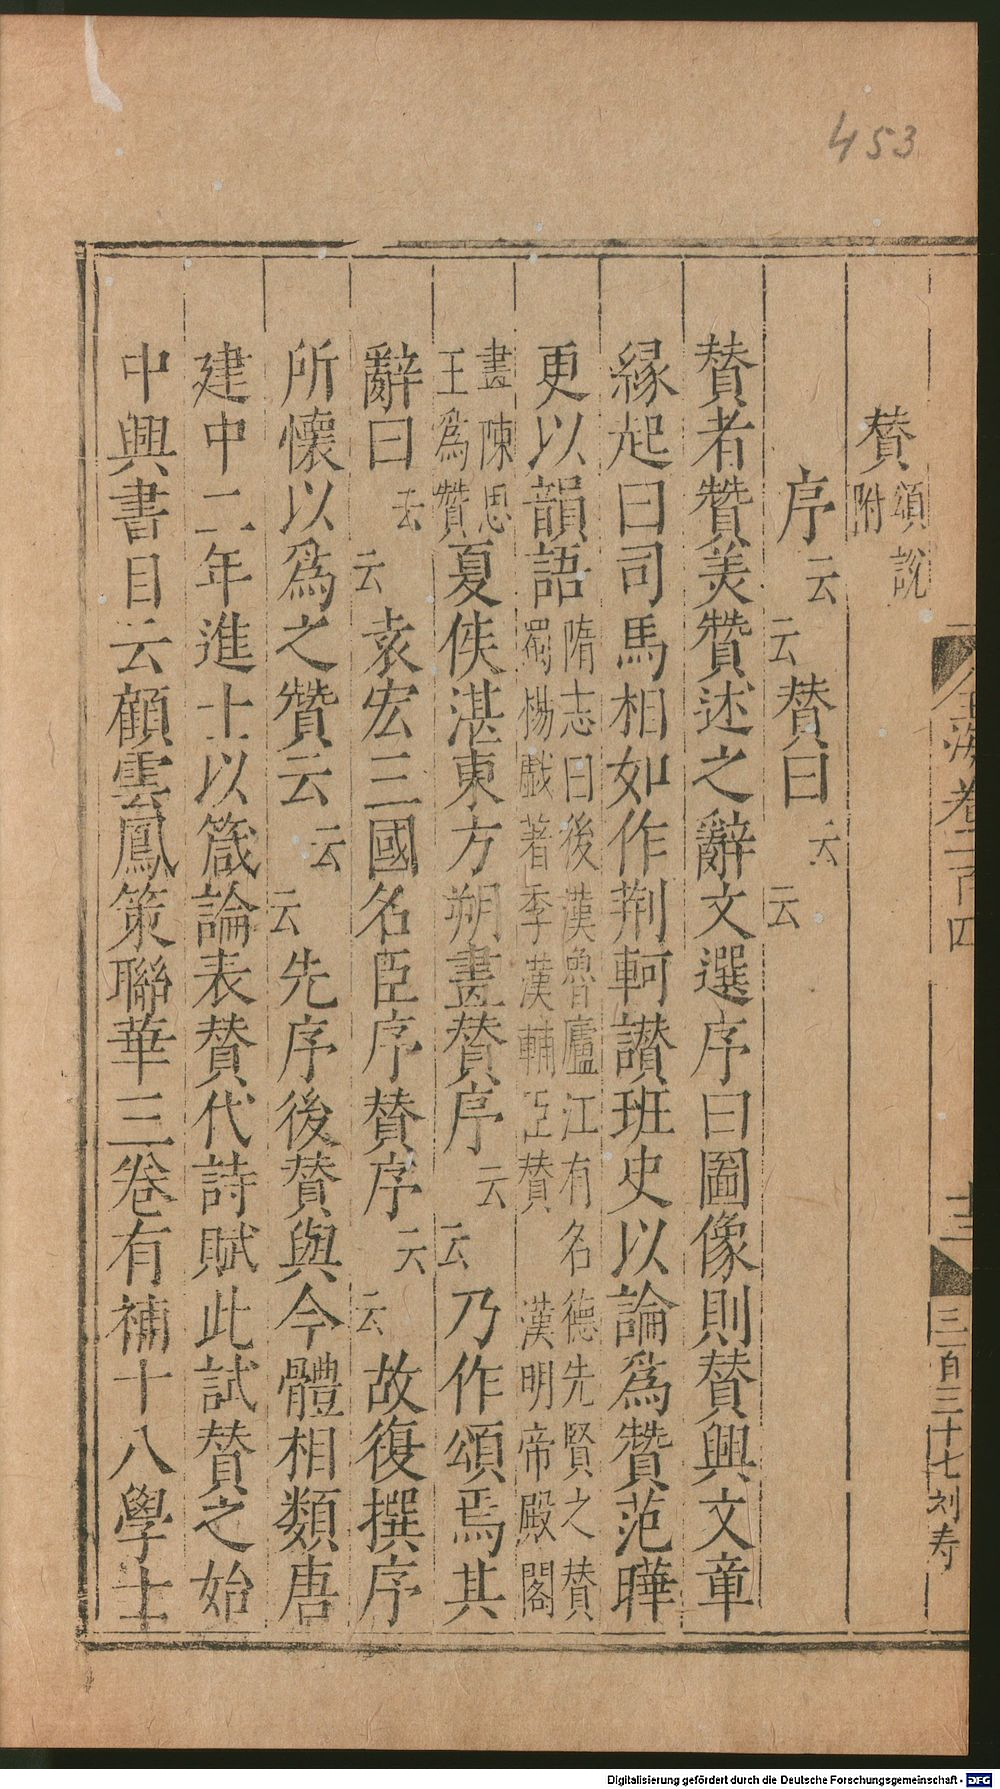 453
贊頌說附
序云云贊曰云云
贊者贊美贊述之辭文選序曰圖像則贊興文章
緣起曰司馬相如作荆軻讃班史以論爲贊范曄
更以韻語隋志曰後漢魯廬江有名德先賢之贊蜀楊戲著季漢輔臣贊漢明帝殿閣
畫陳思王爲贊夏侯湛東方朔畫贊序云云乃作頌焉其
辭曰云云袁宏三國名臣序贊序云云故復撰序
所懷以爲之贊云云云先序後贊與今體相類唐
建中二年進士以箴論表贊代詩賦此試贊之始
中興書目云顧雲鳳策聯華三卷有補十八學士
海卷二百四
十三
三百三十七刘寿
Digitalisierung gefördert durch die Deutsche Forschungsgemeinschaft - DFG